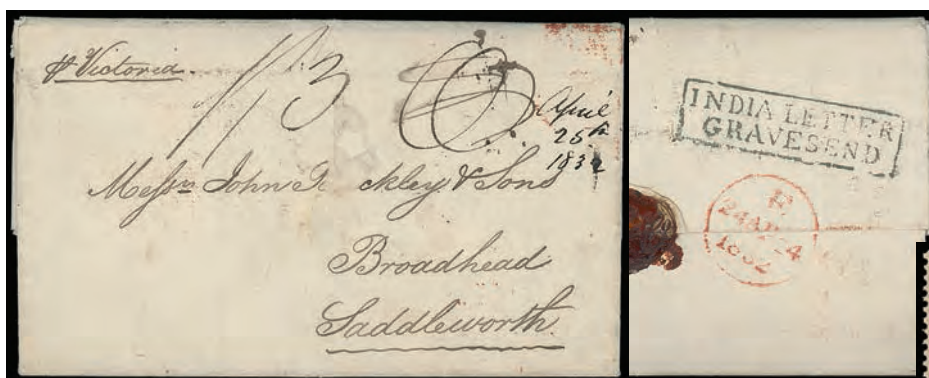 pr Victoria
1/13
April
25th
1832
Messrs John ckley & Sons
Broadhead
Saddleworth
INDIA LETTER
GRAVESEND
24 AP 24
1832